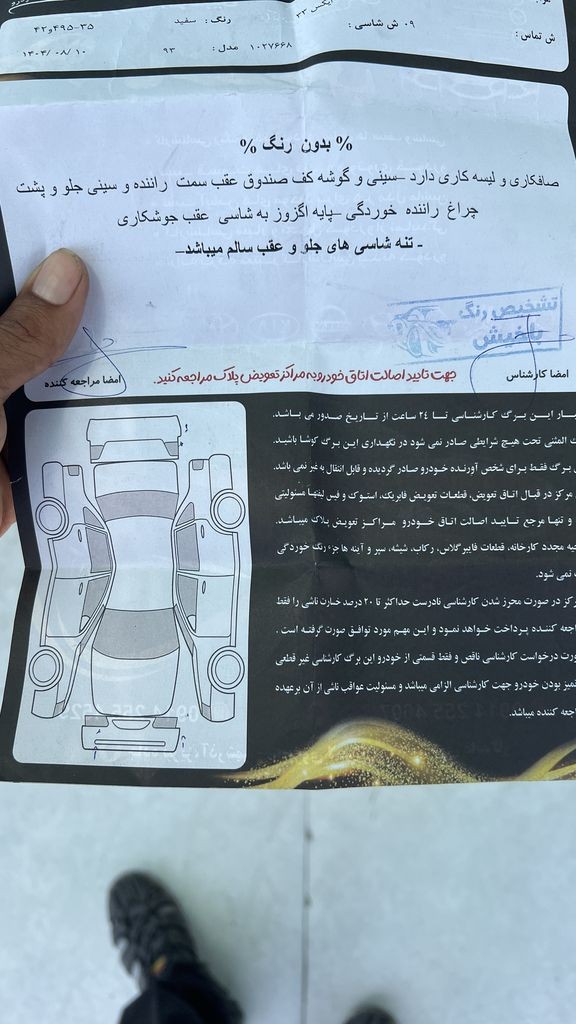 ۰۹ ش شاسی : ایکس ۳۳ رنگ : سفید ۴۲و۴۹۵-۳۵
ش تماس : ۱۰۲۷۶۶۸ مدل : ۹۳ ۱۴۰۴/۰۸/۱۰
% بدون رنگ %
صافکاری و لیسه کاری دارد –سینی و گوشه کف صندوق عقب سمت راننده و سینی جلو و پشت
چراغ راننده خوردگی –پایه اگزوز به شاسی عقب جوشکاری
- تنه شاسی های جلو و عقب سالم میباشد–
تشخیص رنگ
امضا کارشناس
جهت تایید اصالت اتاق خودرو به مراکز تعویض پلاک مراجعه کنید.
امضا مراجعه کننده
این برگ کارشناسی تا ۲۴ ساعت از تاریخ صدور می باشد.
المثنی تحت هیچ شرایطی صادر نمی شود در نگهداری این برگ کوشا باشید.
برگ فقط برای شخص آورنده خودرو صادر گردیده و قابل انتقال به غیر نمی باشد.
مرکز در قبال اتاق تعویض، قطعات تعویض فابریک، استوک و فیس لیفتها مسئولیتی
و تنها مرجع تایید اصالت اتاق خودرو مراکز تعویض پلاک میباشد.
مجدد کارخانه، قطعات فایبرگلاس، رکاب، شیشه، سپر و آینه ها جزء رنگ خوردگی
نمی شود.
در صورت محرز شدن کارشناسی نادرست حداکثر تا ۲۰ درصد خسارت ناشی را فقط
کننده پرداخت خواهد نمود و این مهم مورد توافق صورت گرفته است .
درخواست کارشناسی ناقص و فقط قسمتی از خودرو این برگ کارشناسی غیر قطعی
تمیز بودن خودرو جهت کارشناسی الزامی میباشد و مسئولیت عواقب ناشی از آن برعهده
کننده میباشد.